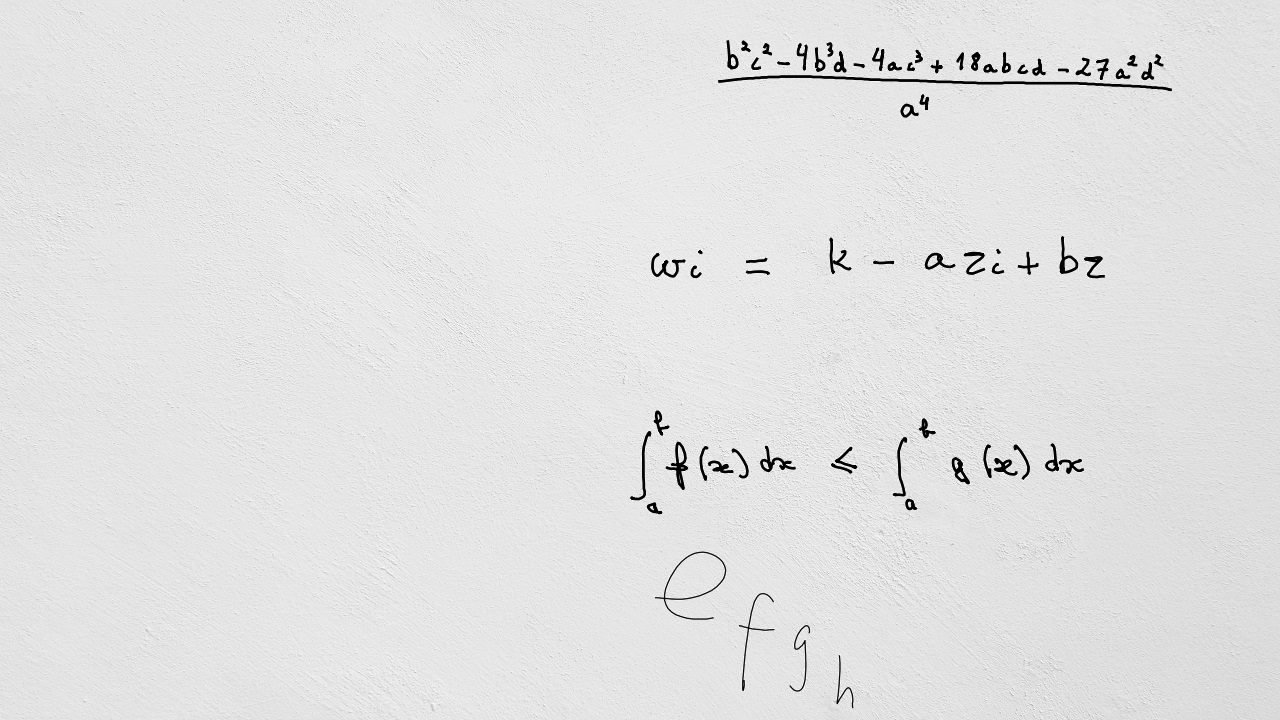 \frac{b^2c^2 - 4b^3d - 4ac^3 + 18abcd - 27a^2d^2}{a^4}
wi = k - azi + bz
\int_a^b f(x) dx \leqslant \int_a^b g(x) dx
e_{f_{g_h}}